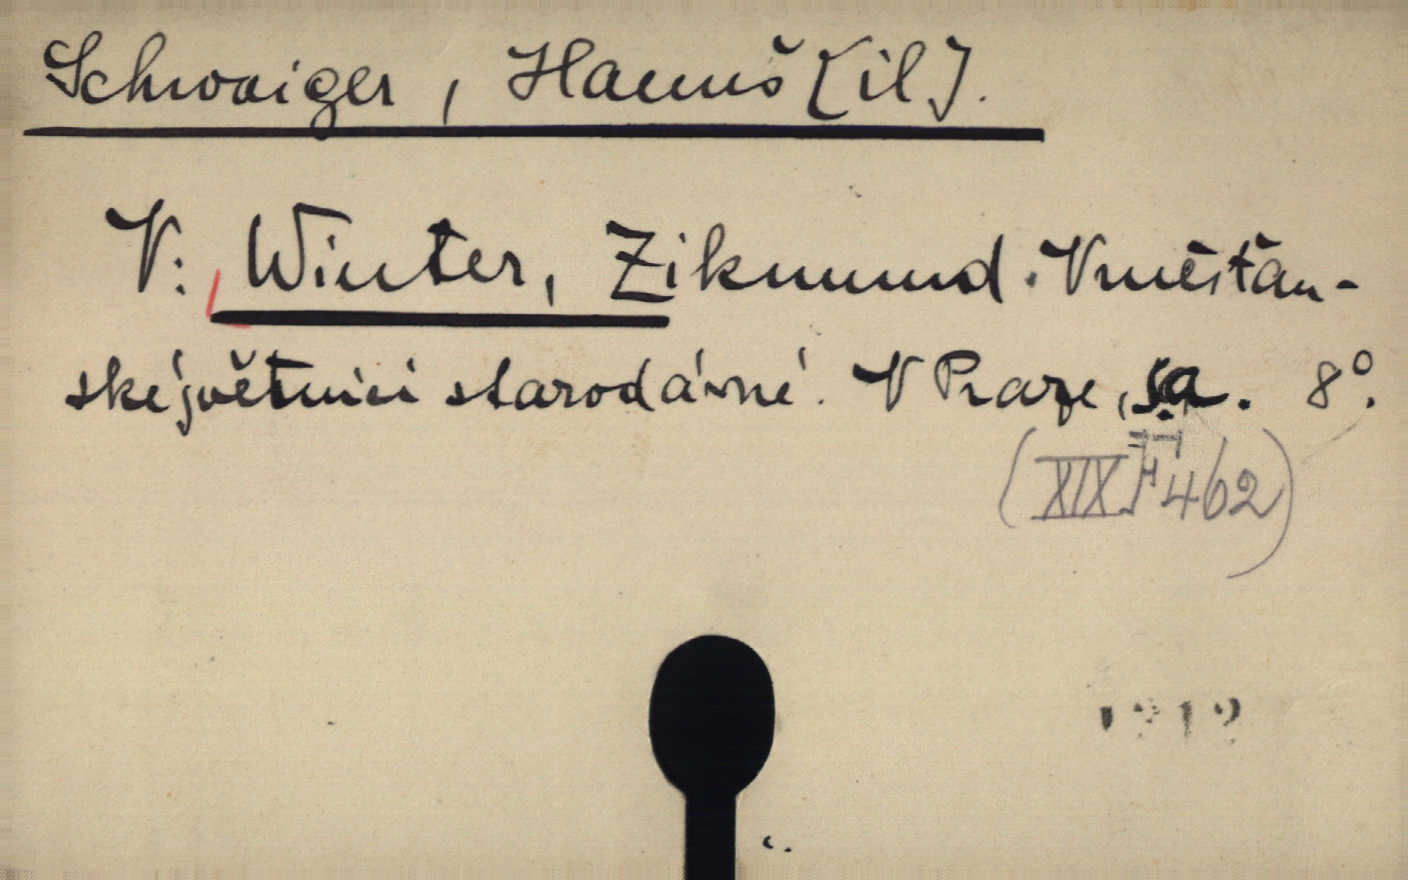 Schwaiger, Hanuš [il].
V: Winter, Zikmund. V měšťan-
ské jvětnici starodávné. V Praze, s.a. 8°.
(XIX F 462)
1919